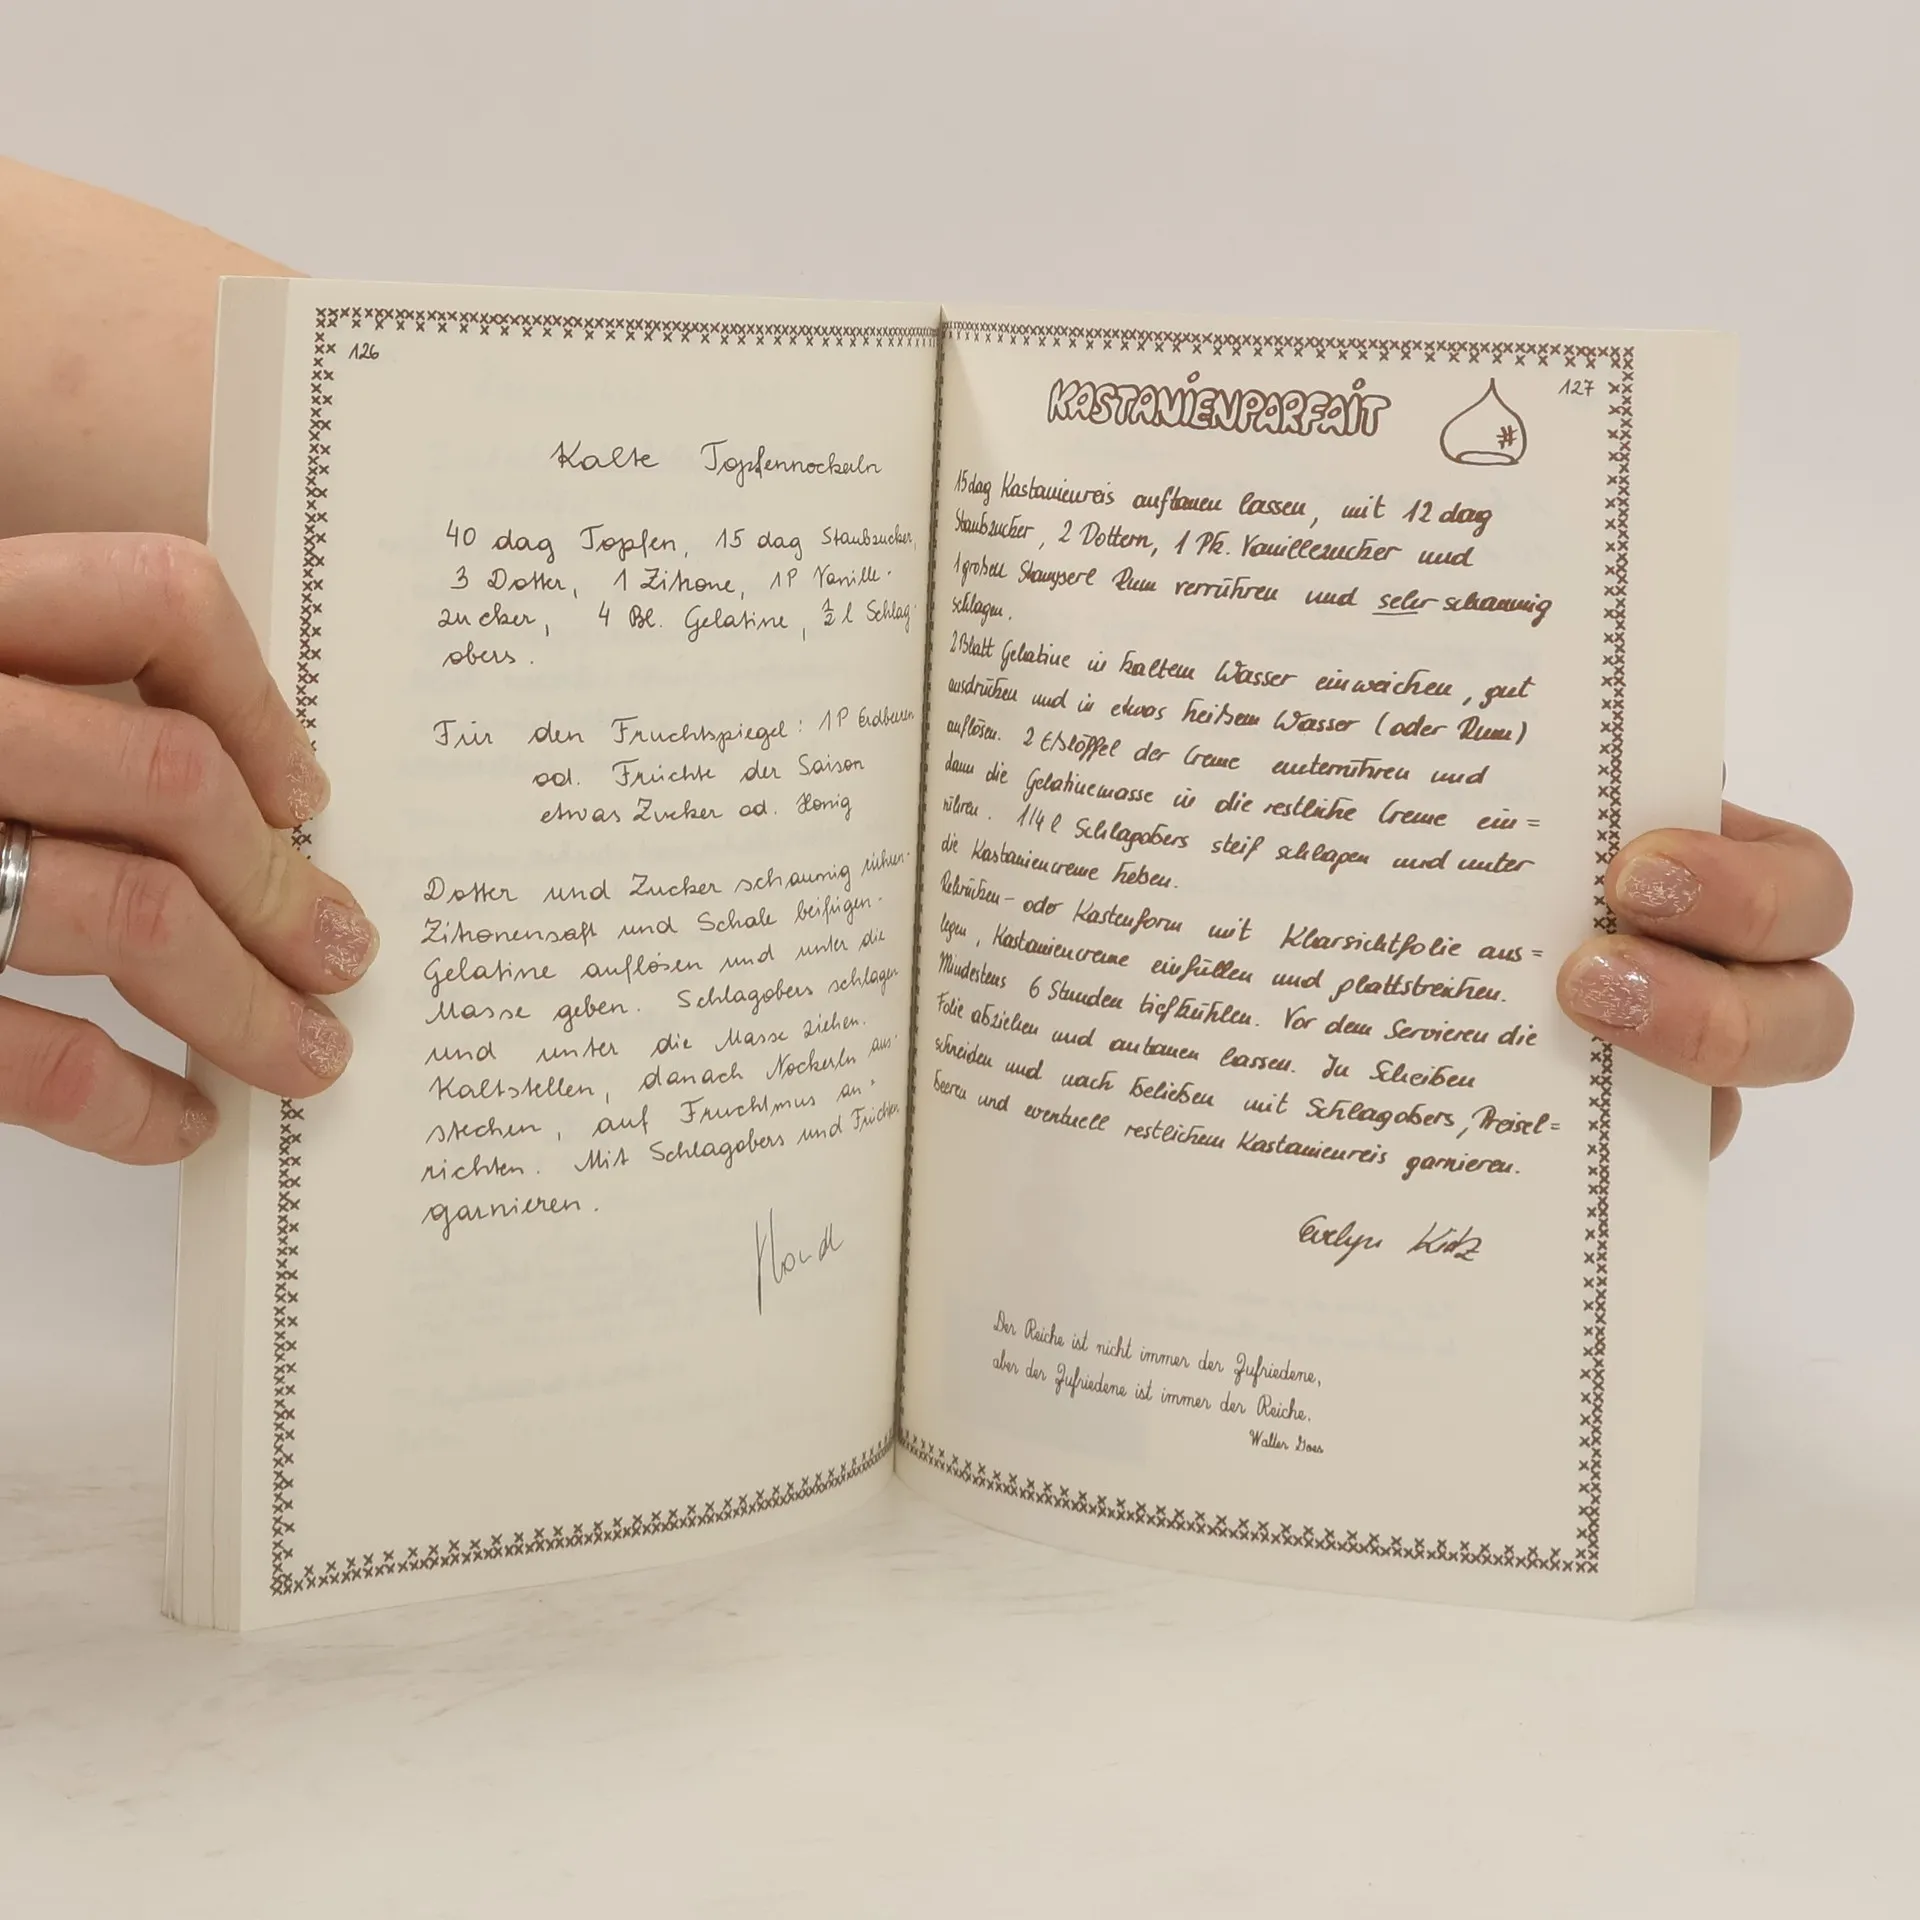 126
Kalte Topfennockerln
40 dag Topfen, 15 dag Staubzucker,
3 Dotter, 1 Zitrone, 1P Vanille-
zucker, 4 Bl. Gelatine, ½ l Schlag-
obers.
Für den Fruchtspiegel: 1P Erdbeeren
od. Früchte der Saison
etwas Zucker od. Honig
Dotter und Zucker schaumig rühren.
Zitronensaft und Schale beifügen.
Gelatine auflösen und unter die
Masse geben. Schlagobers schlagen
und unter die Masse ziehen.
Kaltstellen, danach Nockerln aus-
stechen, auf Fruchtmus an-
richten. Mit Schlagobers und Früchten
garnieren.
127
KASTANIENPARFAIT
15dag Kastanienreis auftauen lassen, mit 12 dag
Staubzucker, 2 Dottern, 1 Pk. Vanillezucker und
1 großen Stamperl Rum verrühren und sehr schaumig
schlagen.
2 Blatt Gelatine in kaltem Wasser einweichen, gut
ausdrücken und in etwas heißem Wasser (oder Rum)
auflösen. 2 Eßlöffel der Creme unterrühren und
dann die Gelatinemasse in die restliche Creme ein=
rühren. 1/4 l Schlagobers steif schlagen und unter
die Kastaniencreme heben.
Rehrücken- oder Kastenform mit Klarsichtfolie aus=
legen, Kastaniencreme einfüllen und plattstreichen.
Mindestens 6 Stunden tiefkühlen. Vor dem Servieren die
Folie abziehen und antauen lassen. In Scheiben
schneiden und nach belieben mit Schlagobers, Preisel=
beeren und eventuell restlichem Kastanienreis garnieren.
Evelyn
Der Reiche ist nicht immer der Zufriedene,
aber der Zufriedene ist immer der Reiche.
Walter Goes